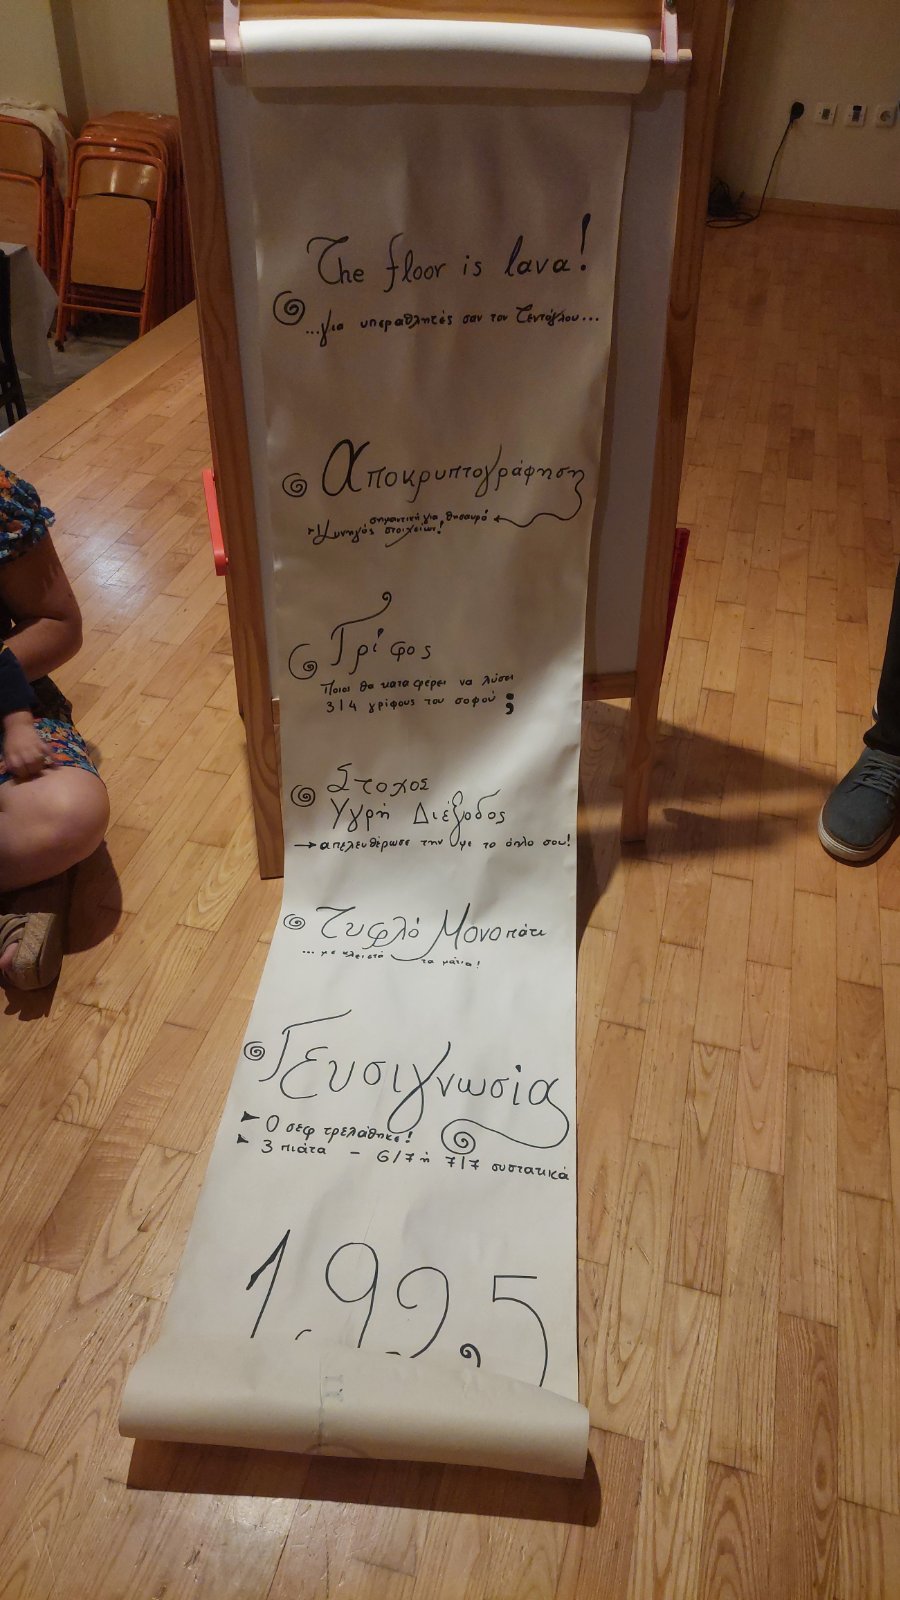 The floor is lava!
...για υπεραθλητές σαν τον Τεντόγλου...
Αποκρυπτογράφηση
σημαντική για θησαυρό
Κυνηγός στοιχείων!
Γρίφος
Ποιοι θα καταφέρει να λύσει
3/4 γρίφους του σοφού ;
Στοχος
Υγρή Διέξοδος
→ απελευθέρωσε την με το όπλο σου!
Τυφλό Μονοπάτι
... με κλειστά τα μάτια!
Γευσιγνωσία
➤ Ο σεφ τρελάθηκε!
➤ 3 πιάτα - 6/7 ή 7/7 συστατικά
1.995